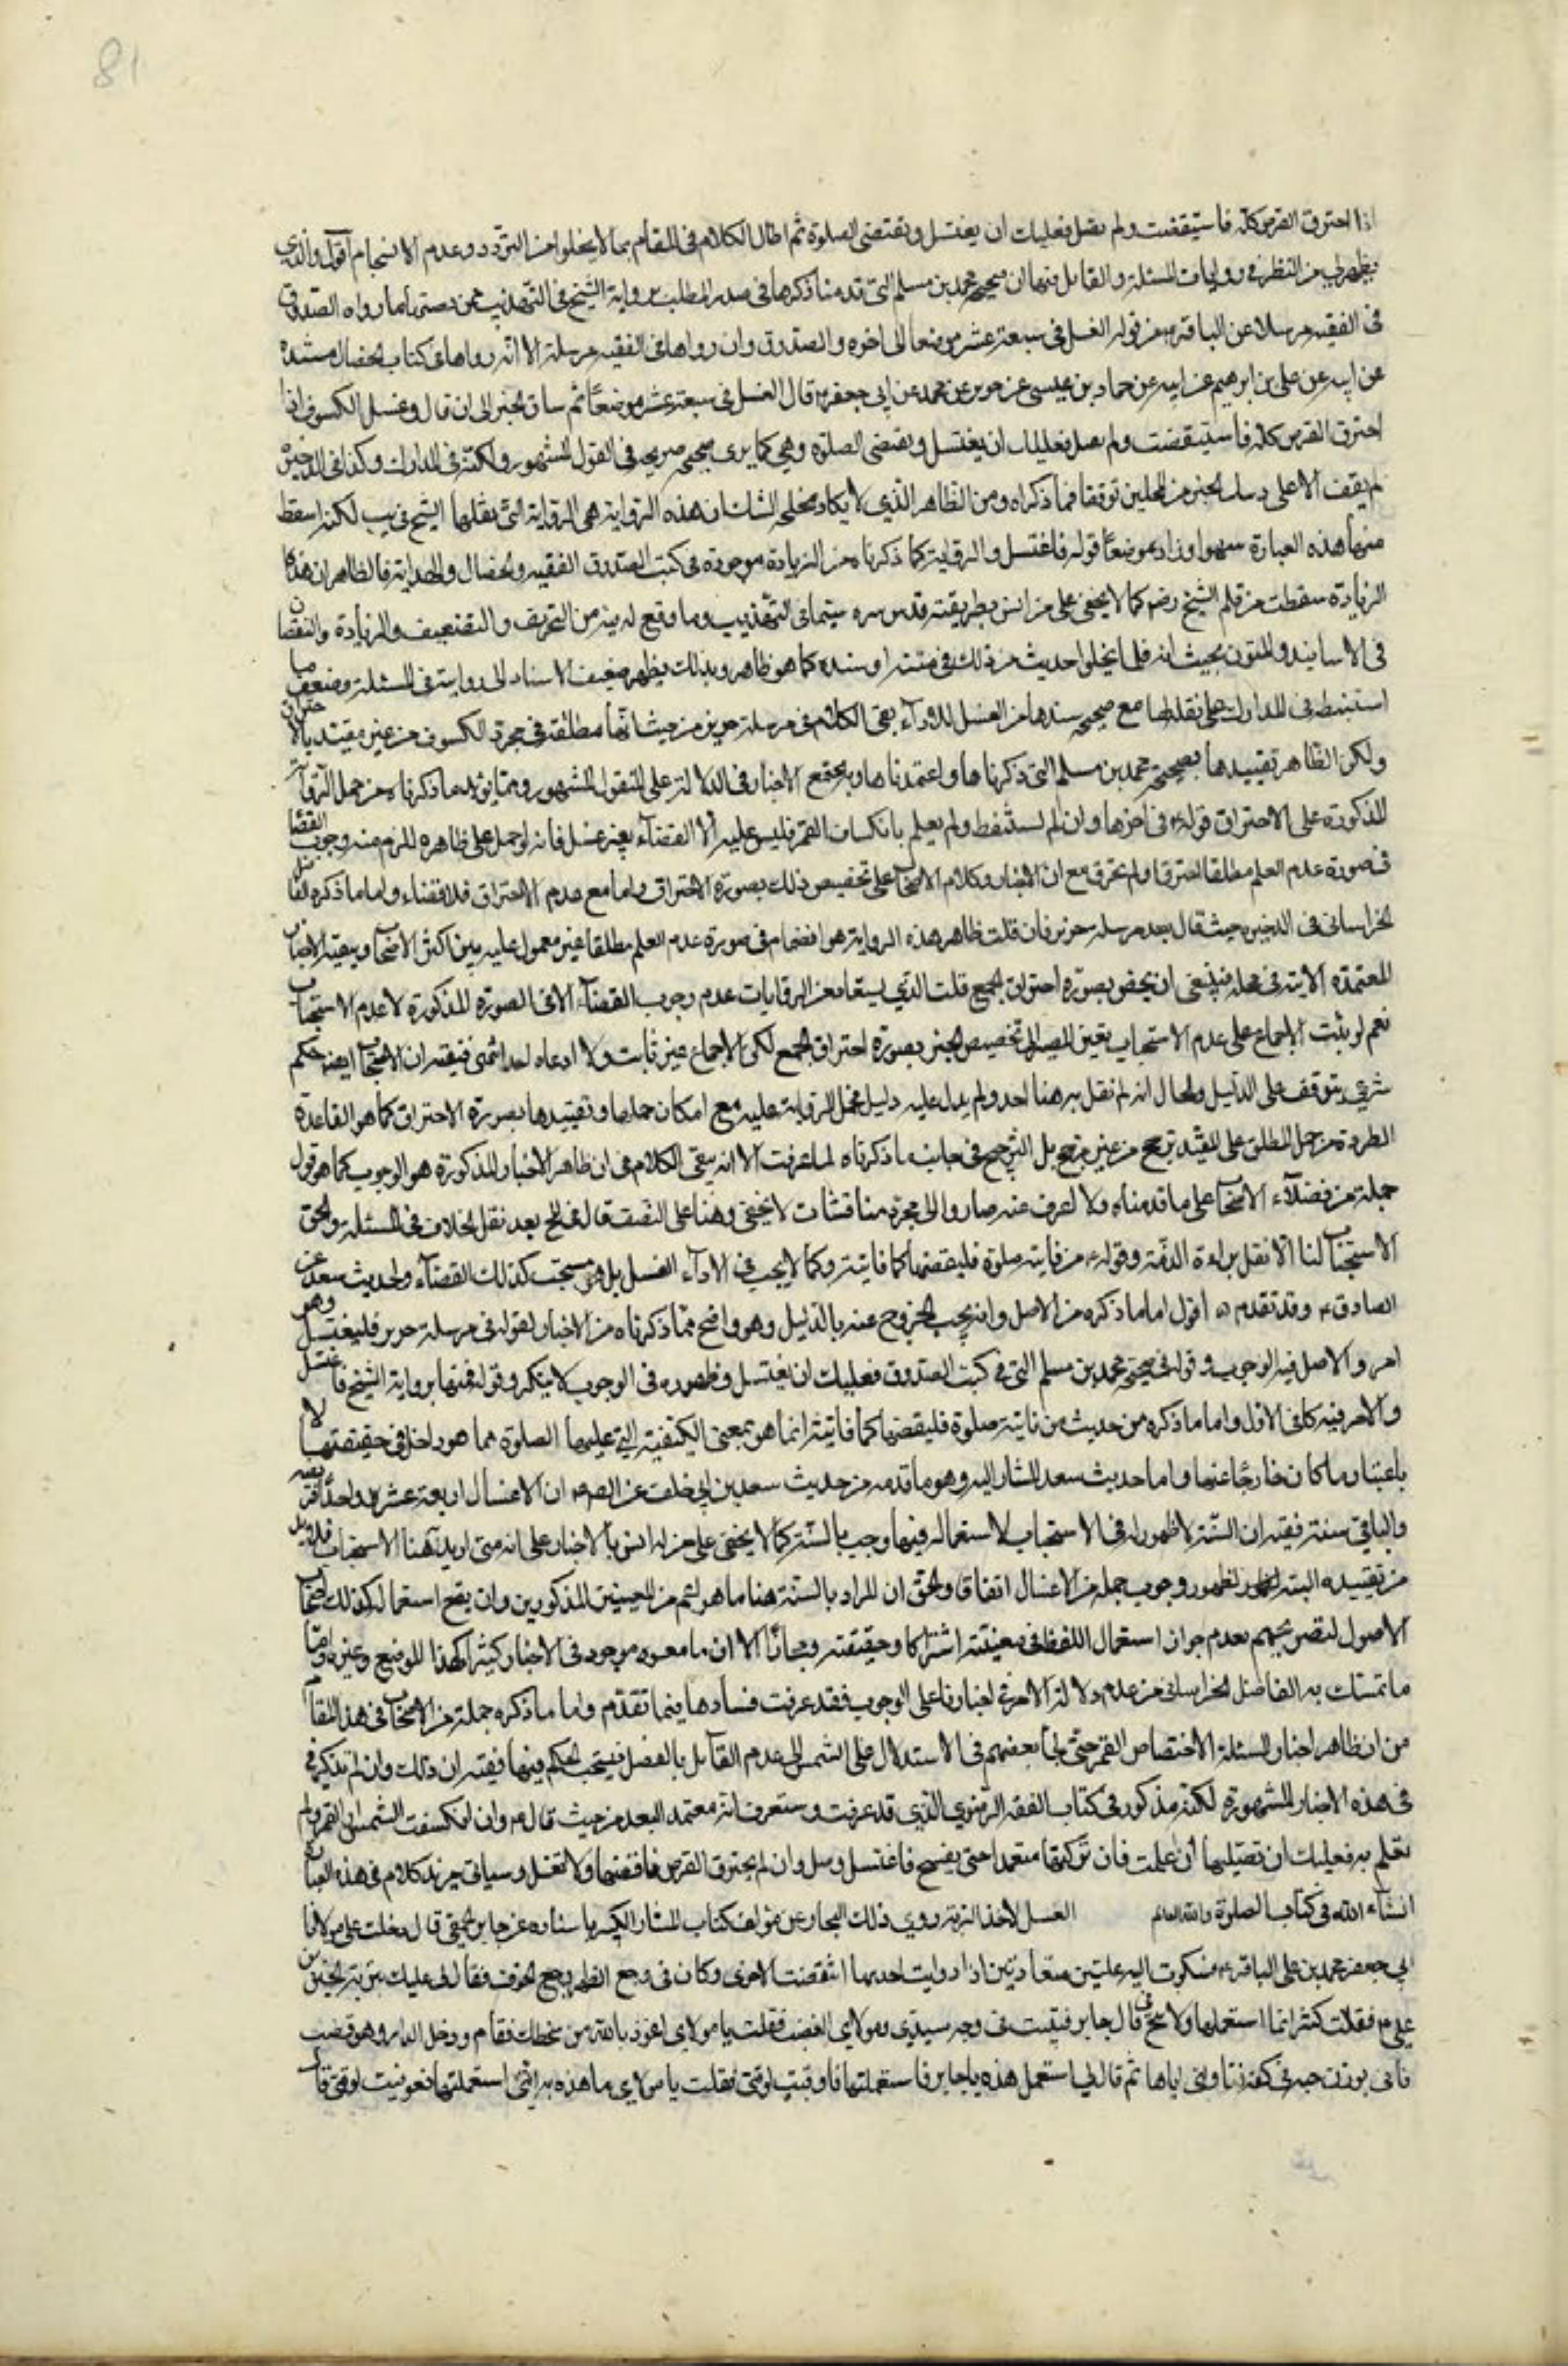 81
اذا احترق القرص كله فاستيقضت ولم تصل فعليك ان يغتسل وتقتضى الصلوة ثم اطال الكلام فى المقام بما لا يخلوا من التردد وعدم الانسجام اقول والذي
يظهر لي من النظر في روايات المسئلة والقائل منها ان صحيحة محمد بن مسلم التى قدمنا ذكرها فى صدر المطلب برواية الشيخ فى التهذيب هى بعينها ما رواه الصدوق
فى الفقيه مرسلا عن الباقر ع من قوله الغسل فى سبعة عشر موضعا الى اخره والصدوق وان رواها فى الفقيه مرسلة الا انه رواها فى كتاب الخصال مسندة
عن ابيه عن على بن ابرهيم عن ابيه عن حماد بن عيسى عن حريز عن محمد عن ابي جعفر ع قال الغسل فى سبعة عشر موضعًا ثم ساق الخبر الى ان قال وغسل الكسوف اذا
احترق القرص كله فاستيقضت ولم تصل فعليك ان يغتسل ويقتضى الصلوة وهي كما يرى صحيحة صريحة فى القول المشهور ولكنه فى المدارك وكذا فى الذخيرة
لم يقف الا على الخبر من المحلين توقفا فيما ذكراه ومن الظاهر الذي لا يكاد يختلجه الشك ان هذه الرواية هى الرواية التى نقلها الشيخ فى يب لكنه اسقط
منها هذه العبارة سهوا وزاد موضعًا قوله فاغتسل والرواية كما ذكرناه من الزيادة موجودة فى كتب الصدوق الفقيه والخصال والهداية فالظاهر ان هذه
الزيادة سقطت من قلم الشيخ رضه كما لا يخفى على من انس بطريقته قدس سره سيما فى التهذيب وما وقع له فيه من التحريف والتصحيف والزيادة والنقصان
فى الاسانيد والمتون بحيث انه قلما يخلوا حديث من ذلك فى متنه او سنده كما هو ظاهر وبذلك يظهر ضعيف الاسناد الى روايته فى المسئلة وضعف ما
استنبطه فى المدارك على نقله لها مع صحيحة سندها من الغسل للاداء بقى الكلام فى مرسلة حريز من حيث انها مطلقة فى مجرد الكسوف من غير مقيد بالاحتراق
ولكن الظاهر تقييدها بصحيحة محمد بن مسلم التى ذكرناها واعتمدناها وبه يجتمع الاخبار فى الدلالة على القول المشهور ومما يؤيد ما ذكرناه من حمل الرواية
المذكورة على الاحتراق قوله ع فى اخرها وان لم يستيقظ ولم يعلم بانكساف القمر فليس عليه الا القضاء بغير غسل فانه لو حمل على ظاهره للزم منه وجوب القضا
فى صورة عدم العلم مطلقا احترق او لم يحترق مع ان الاخبار وكلام الاصحاب على تخصيص ذلك بصورة الاحتراق واما مع عدم الاحتراق فلا قضاء واما ما ذكره الفاضل
الخراسانى فى الذخيرة حيث قال بعد مرسلة حريز فان قلت ظاهر هذه الرواية هو القضاء فى صورة عدم العلم مطلقا غير معمول عليه بين اكثر الاصحاب وبقية الاخبار
المعتمدة الاتية فى محله فينبغى ان يخص بصورة احتراق الجميع قلت الذي يستفاد من الروايات عدم وجوب القضاء الا فى الصورة المذكورة لا عدم الاستحباب
نعم لو ثبت الاجماع على عدم الاستحباب يتعين المصير الى تخصيص الخبر بصورة احتراق الجميع لكن الاجماع غير ثابت ولا ادعاه احد انتهى ففيه ان الاستحباب ايضا حكم
شرعي يتوقف على الدليل والحال انه لم نقل به هنا احد ولم يدل عليه دليل فحمل الرواية عليه مع امكان حملها وتقييدها بصورة الاحتراق كما هو القاعدة
المطردة من حمل المطلق على المقيد ترجيح من غير مرجح بل الترجيح فى جانب ما ذكرناه لما عرفت الا انه يبقى الكلام فى ان ظاهر الاخبار المذكورة هو الوجوب كما هو قول
جملة من فضلاء الاصحاب على ما قدمناه ولا نعرف عنه صارفا الى مجرد مناقشات لا تخفى وهنا على المنصف قال فى لخ بعد نقل الخلاف فى المسئلة والحق
الاستحباب لنا الا نقل براءة الذمة وقوله ع من فاتته صلوة فليقضها كما فاتته وكما لا يجب فى الاداء الغسل بل هو مستحب كذلك القضاء ولحديث سعد عن
الصادق ع وقد تقدم ه اقول اما ما ذكره من الاصل وانه يجب الخروج عنه بالدليل وهو واضح مما ذكرناه من الاخبار لقوله فى مرسلة حريز فليغتسل وهو
امر والاصل فيه الوجوب وقوله فى صحيحة محمد بن مسلم التى فى كتب الصدوق فعليك ان تغتسل وظهوره فى الوجوب لا ينكر وقوله فيها برواية الشيخ فاغتسل
والامر فيه كما فى الاول واما ما ذكره من حديث من فاتته صلوة فليقضها كما فاتته انما هو بمعنى الكيفية التي عليها الصلوة مما هو داخل فى حقيقتها لا
باعتبار ما كان خارجًا عنها واما حديث سعد المشار اليه وهو ما قدمه من حديث سعد بن ابي خلف عن الصه ان الاغسال اربعة عشر واحدًا فريضة
والباقى سنة ففيه ان السنة لا ظهور له فى الاستحباب لاستعماله فيما وجب بالسنة كما لا يخفى على من له انس بالاخبار على انه متى اريد هنا الاستحباب فلا بد
من تقييده البتة لظهور وجوب جملة من الاغسال اتفاقا والحق ان المراد بالسنة هنا ما هو اعم من المعنيين المذكورين وان يقبح استعماله كذلك اصحاب
الاصول لتصريحهم بعدم جواز استعمال اللفظ فى معنيته اشتراكا وحقيقته ومجازًا الا ان ما معناه موجود فى الاخبار كثيرا كهذا الموضع وغيره واما
ما تمسك به الفاضل الخراسانى من عدم دلالة الامر فى اخبارنا على الوجوب فقد عرفت فسادها فيما تقدم واما ما ذكره جملة من الاصحاب فى هذا المقام
من ان ظاهر اخبار المسئلة الاختصاص بالقمر حتى لجأ بعضهم فى الاستدلال على الشمس الى عدم القائل بالفصل فيسحب الحكم فيها ففيه ان ذلك وان لم يذكر فى
فى هذه الاخبار المشهورة لكنه مذكور فى كتاب الفقه الرضوي الذي قد عرفت وستعرف انه معتمد البعد من حيث قال ع وان انكسفت الشمس او القمر ولم
تعلم به فعليك ان تصليها اذا علمت فان تركتها متعمدا حتى يصبح فاغتسل وصل وان لم يحترق القرص فاقضها ولا تغتسل وسياتى مزيد كلام فى هذه العبارة
انشاء الله فى كتاب الصلوة والله العالم الغسل لاخذ التربة روى ذلك البحار عن مؤلف كتاب المزار الكبير باسناده عن جابر الجعفى قال دخلت على مولانا
ابي جعفر محمد بن على الباقر ع فشكوت اليه علتين متضادتين اذا داويت احديهما انتقضت الاخرى وكان فى وجع الظهر ووجع الجوف فقال لى عليك بتربة الحسين بن
على ع فقلت كثيرا ما استعملها ولا تنجح فى قال جابر فتبينت فى وجه سيدي ومولاي الغضب فقلت يا مولاي اعوذ بالله من سخطك فقام ودخل الدار وهو مغضب
فاتى بوزن حبة فى كفه فناولنى اياها ثم قال لى استعمل هذه يا جابر فاستعملتها فعوفيت لوقتى فقلت يا مولاي ما هذه التى استعملتها فعوفيت لوقتى قال